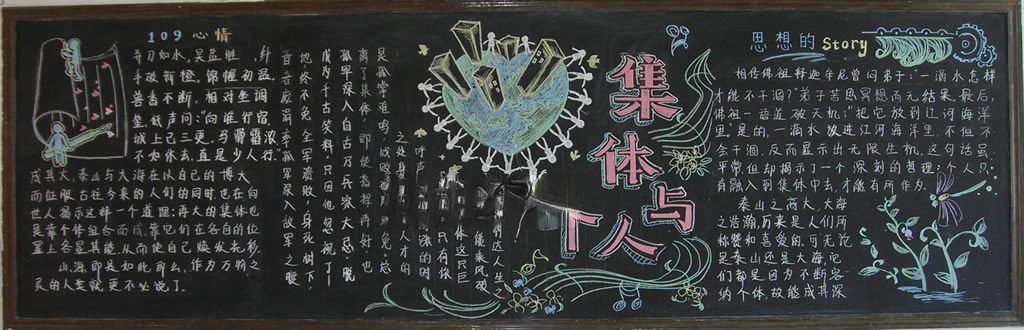 109 心情
并刀如水，吴盐胜 纤
手破新橙。锦幄初温，
兽香不断，相对坐调
笙。低声问：“向谁行宿，
城上已三更，马滑霜浓，
不如休去，直是少人行。
成其大，泰山与大海在以自己的博大
而征服古往今来的人们的同时也在向
世人揭示这样一个道理：再大的集体也
是靠个体组合而成，靠它们在各自的位
置上各显其能，从而使自己焕发光彩
山、海即是如此那么，作为万物之
灵的人类就更不必说了。
昔者庞涓率孤军深入敌军之腹
他终不免全军溃败，身 树下，
成为千古笑料，只因他忽视了
孤军深入自古乃兵家大忌，脱
离了集体，即使指挥再好，也
是孤掌难鸣，
集体与个人
思想的Story
相传佛祖释迦牟尼曾问弟子：“一滴水怎样
才能不干涸？”弟子苦思冥想而无结果。最后，
佛祖一语道破天机：“把它放到江河海洋
里。”是的，一滴水放进江河海洋里，不但不
会干涸，反而显示出无限生机，这句话虽
平常，但却揭示了一个深刻的哲理：个人只
有融入到集体中去，才能有所作为。
泰山之高大，大海
之浩瀚，历来是人们所
称赞和喜爱的，可无论
是泰山还是大海，它
们都是因为不断容
纳个体，故能成其深